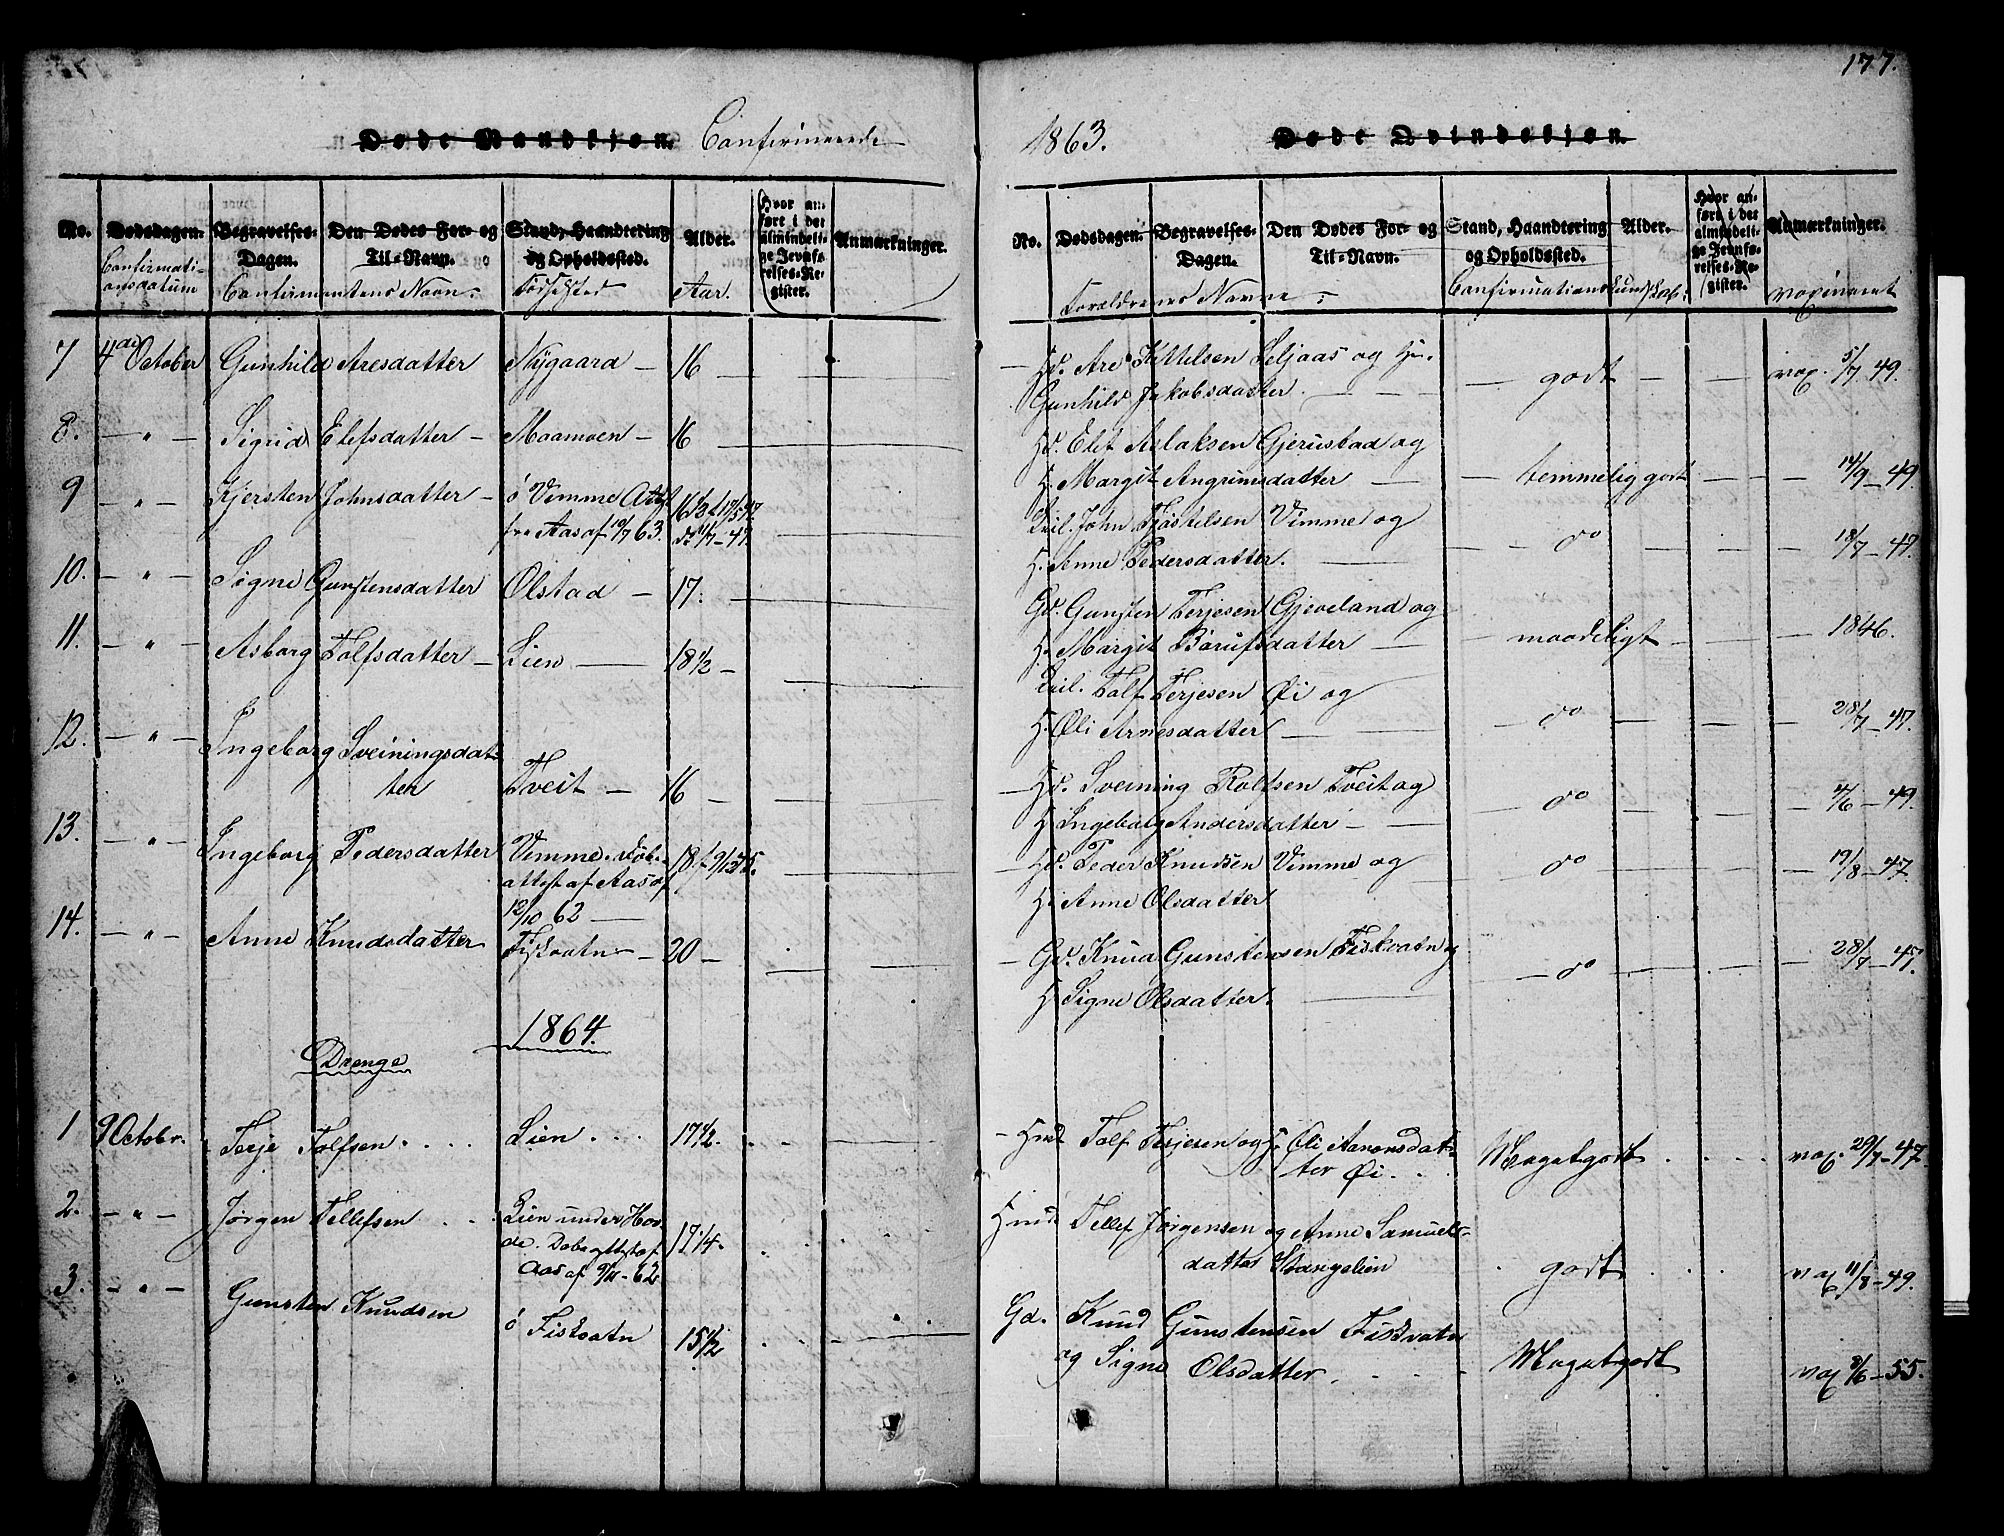 177.
Døde Mandkjøn. Confirmerede
1863. Døde Qvindekjøn.
No. Dødsdagen. Begravelses-Dagen. Den Dødes For- og Til-Navn. Stand, Haandtering og Opholdssted. Alder. Hvor anført i det almindelige Jevnførelses-Register. Anmærkninger.
Confirmationsdatum Confirmantens Navn: Fødested Aar.
No. Dødsdagen. Begravelses-Dagen. Den Dødes For- og Til-Navn. Stand, Haandtering og Opholdssted. Alder. Hvor anført i det almindelige Jevnførelses-Register. Anmærkninger.
Forældrenes Navne: Confirmationskundskab: vaxineret
7 4de October Gunhild Aresdatter Nygaard – 16 –
Hd. Are Kittelsen Seljaas og Hu.
Gunhild Jakobsdatter. – godt – vax. 5/7 49.
8. – " – Sigrid Elefsdatter – Moamoen – 16
Hd. Elef Aslaksen Gjerustad og
H. Margit Angrimsdatter – temmelig godt – 14/9 – 49.
9 – " – Kjersten Johnsdatter – ø Vimme Att.
fra Aas af 10/7 63.
Inil. John Tjøstelsen Vimme og
H. Anne Pedersdatter. – do – 18/7 – 47.
10. – " – Signe Gunstensdatter Ølstad – 17.
Gd. Gunsten Terjesen Gjeveland og
H. Margit Børufsdatter – maadeligt – 1846.
11. – " – Asborg Tolfsdatter – Lien – 18 1/2 –
Inil. Tolf Terjesen Øi og
H. Øli Arnesdatter – do – 28/7 – 47.
12. – " – Ingeborg Sveiningsdat-
ter Tveit – 16 –
Hd. Sveining Rolfsen Tveit og
H. Ingeborg Andersdatter – do – 4/6 – 49.
13. – " – Ingeborg Pedersdatter Vimme. Døb.
attest af Aas af
12/10 62 –
Hd. Peder Knudsen Vimme og
H. Anne Olsdatter – do – 17/8 – 47.
14. – " – Anne Knudsdatter Fiskvatn – 20 –
Gd. Knud Gunstensen Fiskvatn og
H. Signe Olsdatter. – do – 28/7 – 47.
1864.
Drenge
1 9 Octobr. Terje Tolfsen. Lien. 17 1/2.
Hmd Tolf Terjesen og H. Øli Aanonsdat-
ter Øi. Megetgodt vax. 29/7 – 47.
2. – " – Jørgen Tellefsen Lien under Hov-
de. Døbeattest af
Aas af 9/11 – 62 17 1/4.
Hmd. Tellef Jørgensen og Anne Samuels-
datter Stangelien godt vax 11/8 – 49.
3. – " – Gunsten Knudsen ø Fiskvatn 15 1/2
Gd. Knud Gunstensen Fiskvatn
og Signe Olsdatter. Megetgodt vax 8/6 – 55.